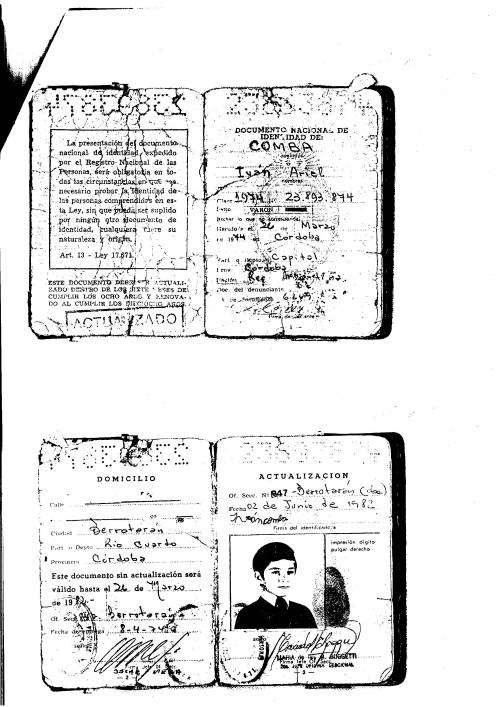 La presentación del documento
nacional de identidad, expedido
por el Registro Nacional de las
Personas, será obligatoria en to-
das las circunstancias en que sea
necesario probar la identidad de
las personas comprendidas en es-
ta Ley, sin que pueda ser suplido
por ningún otro documento de
identidad, cualquiera fuere su
naturaleza y origen.
Art. 13 - Ley 17.671.
ESTE DOCUMENTO DEBE SER ACTUALI-
ZADO DENTRO DE LOS SIETE MESES DE
CUMPLIR LOS OCHO AÑOS Y RENOVA-
DO AL CUMPLIR LOS DIECIOCHO AÑOS
ACTUALIZADO
DOCUMENTO NACIONAL DE
IDENTIDAD DE:
COMBA
apellido
Iván Ariel
nombres
1974 23.893.874
Sexo VARÓN
Nacido el 26 de Marzo
en 1974 en Córdoba
Part. o Depto Capital
Prov. Córdoba
Nación Rep. Argentina
Doc. del denunciante
DOMICILIO
Calle
Ciudad Berrotarán
Part. o Depto Río Cuarto
Provincia Córdoba
Este documento sin actualización será
válido hasta el 26 de Marzo
de
Of. Secc. Berrotarán
Fecha de
— 2 —
ACTUALIZACION
Of. Secc. Nº 847 - Berrotarán (cba)
Fecha 02 de Junio de 1982
Iván Comba
Firma del identificado/a
impresión dígito
pulgar derecho
Firma Jefe Of. Secc.
— 3 —